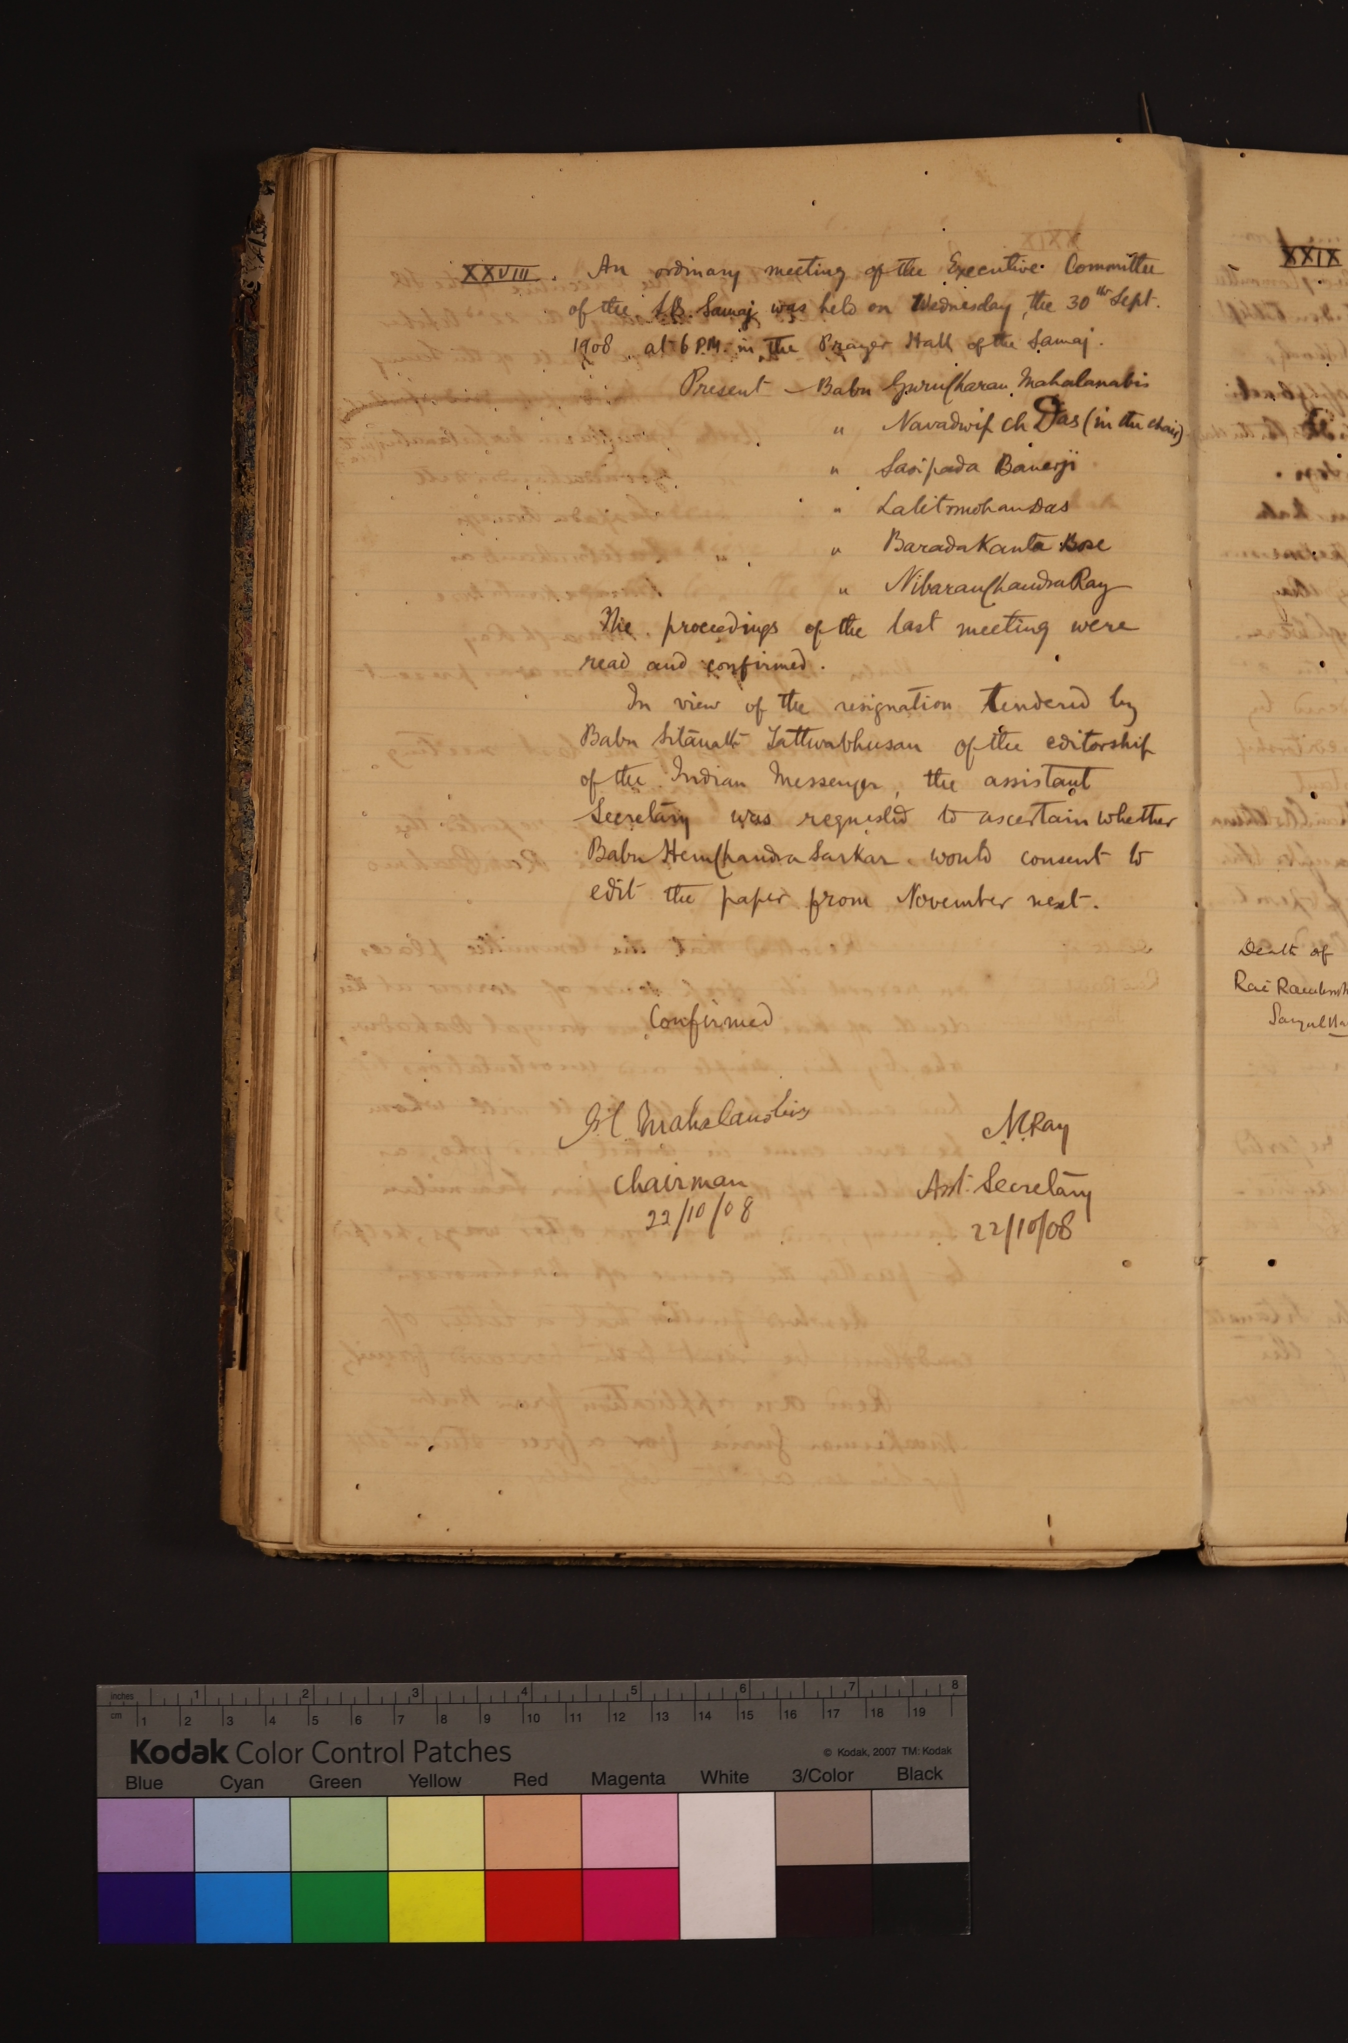 XXVIII. An ordinary meeting of the Executive Committee
of the S.B. Samaj was held on Wednesday, the 30th Sept.
1908 at 6 P.M. in the Prayer Hall of the Samaj.
Present — Babu Gurucharan Mahalanabis
" Navadwip Ch Das (in the chair)
" Sasipada Banerji
" Lalitmohan Das
" Barada Kanta Bose
" Nibaran Chandra Ray
The proceedings of the last meeting were
read and confirmed.
In view of the resignation tendered by
Babu Sitānath Tattwabhusan of the editorship
of the Indian Messenger, the assistant
Secretary was requested to ascertain whether
Babu Hem Chandra Sarkar would consent to
edit the paper from November next.
Confirmed
G.C. Mahalanobis
Chairman
22/10/08
N. Ray
Asst. Secretary
22/10/08
XXIX
Death of
Rai
inches 1 2 3 4 5 6 7 8
cm 1 2 3 4 5 6 7 8 9 10 11 12 13 14 15 16 17 18 19
Kodak Color Control Patches
© Kodak, 2007 TM: Kodak
Blue Cyan Green Yellow Red Magenta White 3/Color Black